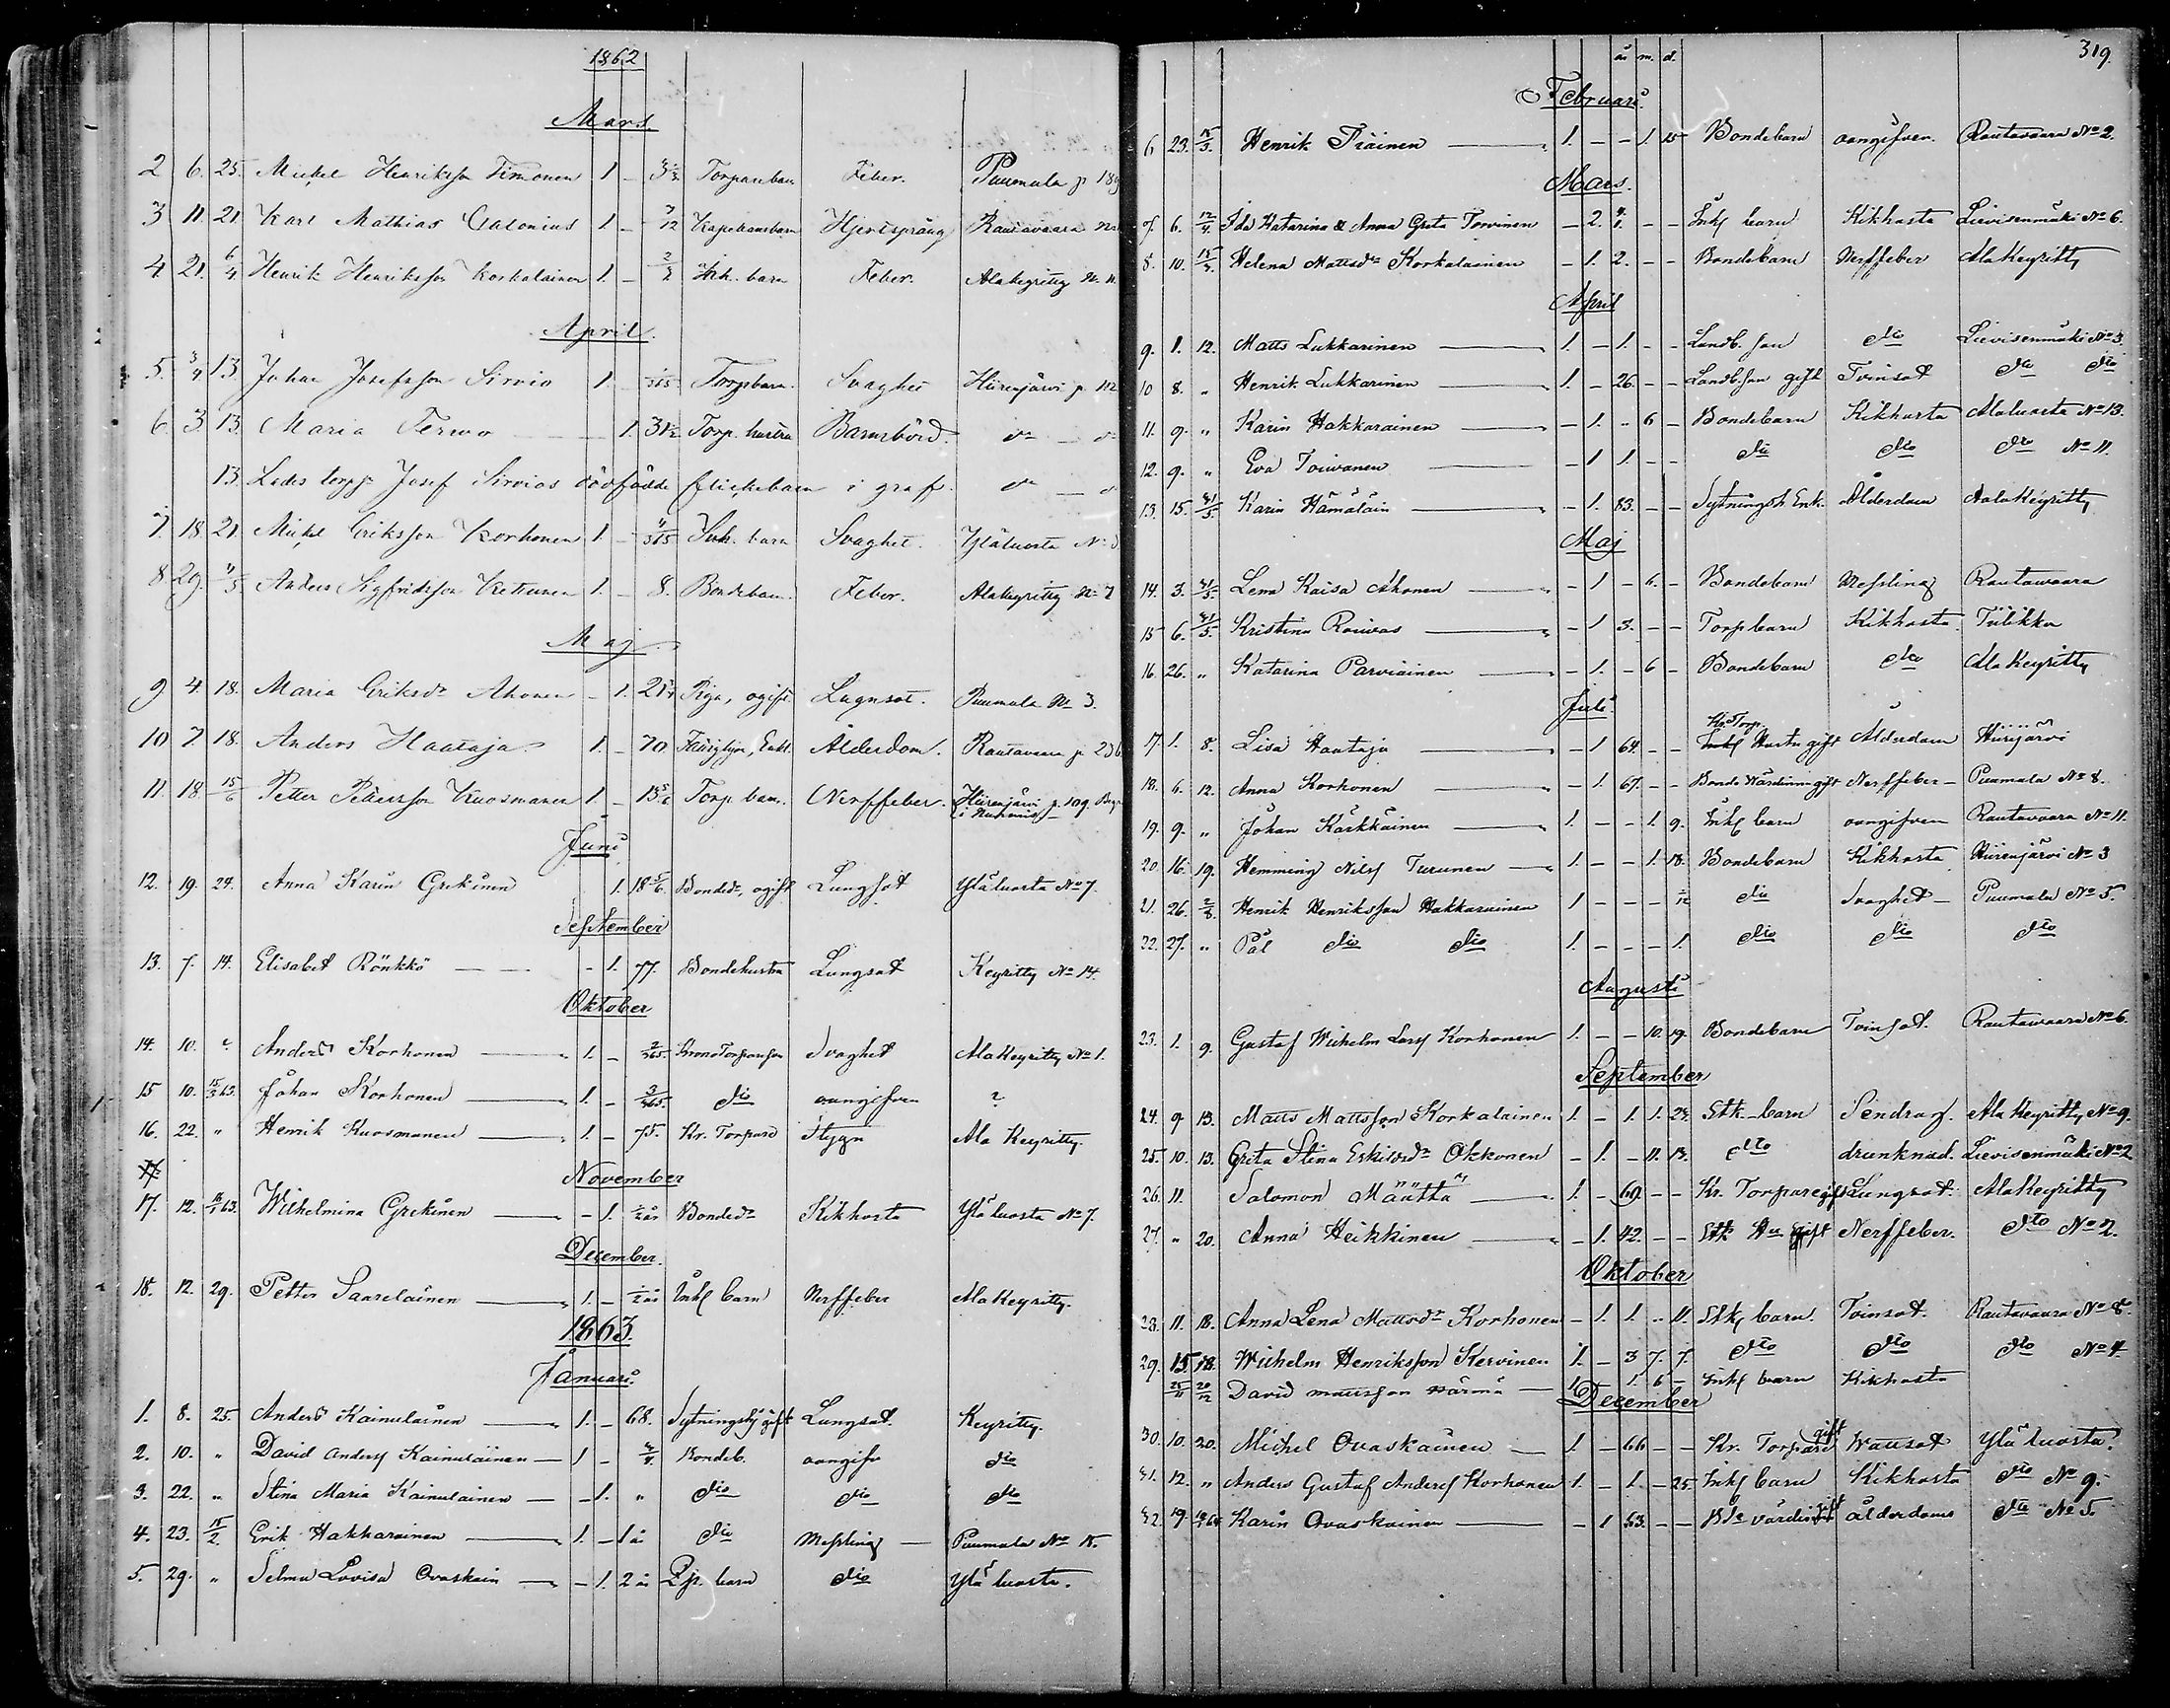 1862
Mars.
2 6. 25. Mickel Henriksson Timonen 1 - Torparebarn Feber. Puumala p 189
3 11. 21 Karl Mathias Calonius 1 - 7/12 Kapellansbarn Hjertsprång Rautavaara
4 21. 6/4 Henrik Henriksson Korkalainen 1. - 2/2 Inh. barn Feber. Alakeyritty N. 11
April.
5. 3/4 13. Johan Josefsson Sirvio 1. - 1/365 Torpbarn. Svaghet Hiirenjärvi p. 112
6. 3. 13. Maria Tervo - 1. 31 1/2 Torp. hustru Barnsbörd. do - do
13. Lades torpp. Josef Sirvios dödfödde flickebarn i graf. do - do
7. 18. 21. Mickel Eriksson Korhonen 1. - 4/365 Inh. barn Svaghet. Yläluosta No
8 29. 4/5. Anders Sigfridsson Kettunen 1. - 8. Bondebarn. Feber. Alakeyritty No 7
Maj
9 4. 18. Maria Eriksdr Ahonen - 1. 21 Piga, ogift. Lugnsot. Puumala No 3.
10 7. 18. Anders Haataja 1. - 70. Fattighjon, Enkl. Ålderdom. Rautavaara p. 236
11. 18 15/6 Petter Pettersson Kuosmanen 1. - 13 5/6 Torp. barn. Nerffeber. Hiirenjärvi p. 109. Begr.
i Nurmis
Juni
12. 19. 24. Anna Karin Grekinen 1. 18 5/6. Bondedr, ogift Lungsot Yläluosta No 7.
September
13. 7. 14. Elisabet Rönkkö - 1. 77. Bondehustru Lungsot Keyritty No 14.
Oktober
14. 10. " Anders Korhonen 1. - 2/365. Krono Torpareson Svaghet Alakeyritty No 1.
15 10. 15/3 63. Johan Korhonen 1. - 3/365. dito oangifven ?
16. 22. " Henrik Kuosmanen 1. - 75. Kr. Torpare Stygn Ala Keyritty.
November
17. 12. 18/1 63. Wilhelmina Grekinen - 1. 1/2 år Bondedr Kikhosta Yläluosta No 7.
December.
18. 12. 29. Petter Saarelainen 1. - 1/2 år Inhs barn Nerffeber Ala Keyritty.
1863.
Januari.
1. 8. 25. Anders Kainulainen 1. - 68. Sytningshj gift Lungsot. Keyritty.
2. 10. " David Anderss Kainulainen 1 - Bondeb. oangifv dito
3. 22. " Stina Maria Kainulainen - 1. " dito dito dito
4. 23. 15/2. Erik Hakkarainen 1. - 1 år dito Messling Puumala No 15.
5. 29. " Selma Lovisa Ovaskain - 1. 2 år Lp. barn dito Ylä luosta.
319.
år m. d.
Februari.
6 23. 15/3. Henrik Tiainen 1. - - 1. 15 Bondebarn oangifven. Rautavaara No 2.
Mars.
7. 6. 12/4. Ida Katarina & Anna Greta Torvinen - 2. - - Inhs barn Kikhosta Lievisenmäki No 6.
8. 10. 15/4. Helena Mattsdr Korkalainen - 1. 2. - - Bondebarn Nerffeber Ala Keyritty
April
9. 1. 12. Matts Lukkarinen 1. - 1. - - Landb. son dito Lievisenmäki No 3.
10 8. " Henrik Lukkarinen 1. - 26. - - Landb. son gift Tvinsot dito dito
11. 9. " Karin Hakkarainen - 1. - 6 - Bondebarn Kikhosta Alaluosta No 13.
12. 9. " Eva Toivanen - 1 1. - - dito dito dito No 11.
13. 15. 31/5. Karin Hämäläin - 1. 83. - - Sytningsh Enk. Ålderdom Alakeyritty
Maj
14. 3. 31/5. Lena Kaisa Ahonen - 1 - 6. - Bondebarn Messling Rautavaara
15 6. 31/5. Kristina Rouvas - 1 3. - - Torpbarn Kikhosta Tiilikka
16. 26. " Katarina Parviainen - 1. - 6 - Bondebarn dito Ala Keyritty
Juli.
Kr. Torp.
17. 1. 8. Lisa Haataja - 1 64. - - Hustru gift Ålderdom Hiirijärvi
18. 6. 12. Anna Korhonen - 1. 67. - - Bonde Värdinna gift Nerffeber Puumala No 8.
19. 9. " Johan Kärkkäinen 1. - - 1. 9. Inhs barn oangifven Rautavaara No 11.
20. 16. 19. Hemming Nilss Turunen 1. - - 1. 18. Bondebarn Kikhosta Hiirenjärvi No 3
21. 26. 2/8. Henrik Henriksson Hakkarainen 1 - - - 1/12 dito Svaghet Puumala No 5.
22. 27. " Pål dito dito 1. - - - 1. dito dito dito
Augusti
23. 1. 9. Gustaf Wilhelm Larss Korhonen 1. - - 10. 19. Bondebarn Tvinsot. Rautavaara No 6.
September
24. 9 13. Matts Mattsson Korkalainen 1. - 1. 1. 23. Stk barn Sendrag. Ala Keyritty No 9.
25. 10. 13. Greta Stina Eskilsdr Okkonen - 1. - 11. 13. dito drunknad. Lievisenmäki No 2
26. 11. Salomon Määttä 1. - 69. - - Kr. Torpare gift Lungsot. Ala Keyritty
27. " 20. Anna Heikkinen - 1. 42. - - Stk Hu gift Nerffeber. dito No 2.
Oktober
28. 11. 18. Anna Lena Mattsdr Korhonen - 1. 1. - 11. Stks barn. Tvinsot. Rautavaara No 8.
29. 15. 18. Wilhelm Henriksson Kervinen 1. - 3 7. 7. dito dito dito No 4.
25/11 20/12 David Mattsson Wärmä 1 1. 6 - Inhs barn Kikhosta
December
30. 10. 20. Michel Ovaskainen 1. - 66 - - Kr. Torpare gift Wattsot Ylä luosta.
31. 12. " Anders Gustaf Anderss Korhonen 1. - 1. - 25. Inhs barn Kikhosta dito No 9.
32. 19. Karin Ovaskainen - 1 53. - - Bde värdin gift ålderdoms dito No 5.